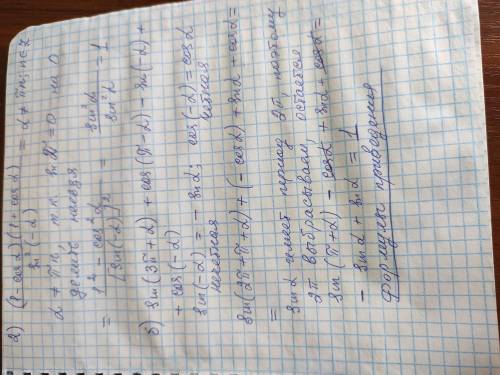 а) (1 - cos α)(1 + cos α) / sin (-α) = α ≠ πn; n ∈ Z
α ≠ πn, т.к. sin πn = 0 на 0
делить нельзя
= 1² - cos² α / [sin(-α)]² = sin² α / sin² α = 1
б) sin(3π + α) + cos(π - α) - sin(-α) +
+ cos(-α)
sin(-α) = - sin α; cos(-α) = cos α
нечётная чётная
sin(2π + π + α) + (- cos α) + sin α + cos α =
=
sin α имеет период 2π, поэтому
2π выбрасываем, остаётся
sin(π + α) - cos α + sin α + cos α =
- sin α + sin α = 1
Формулы приведения